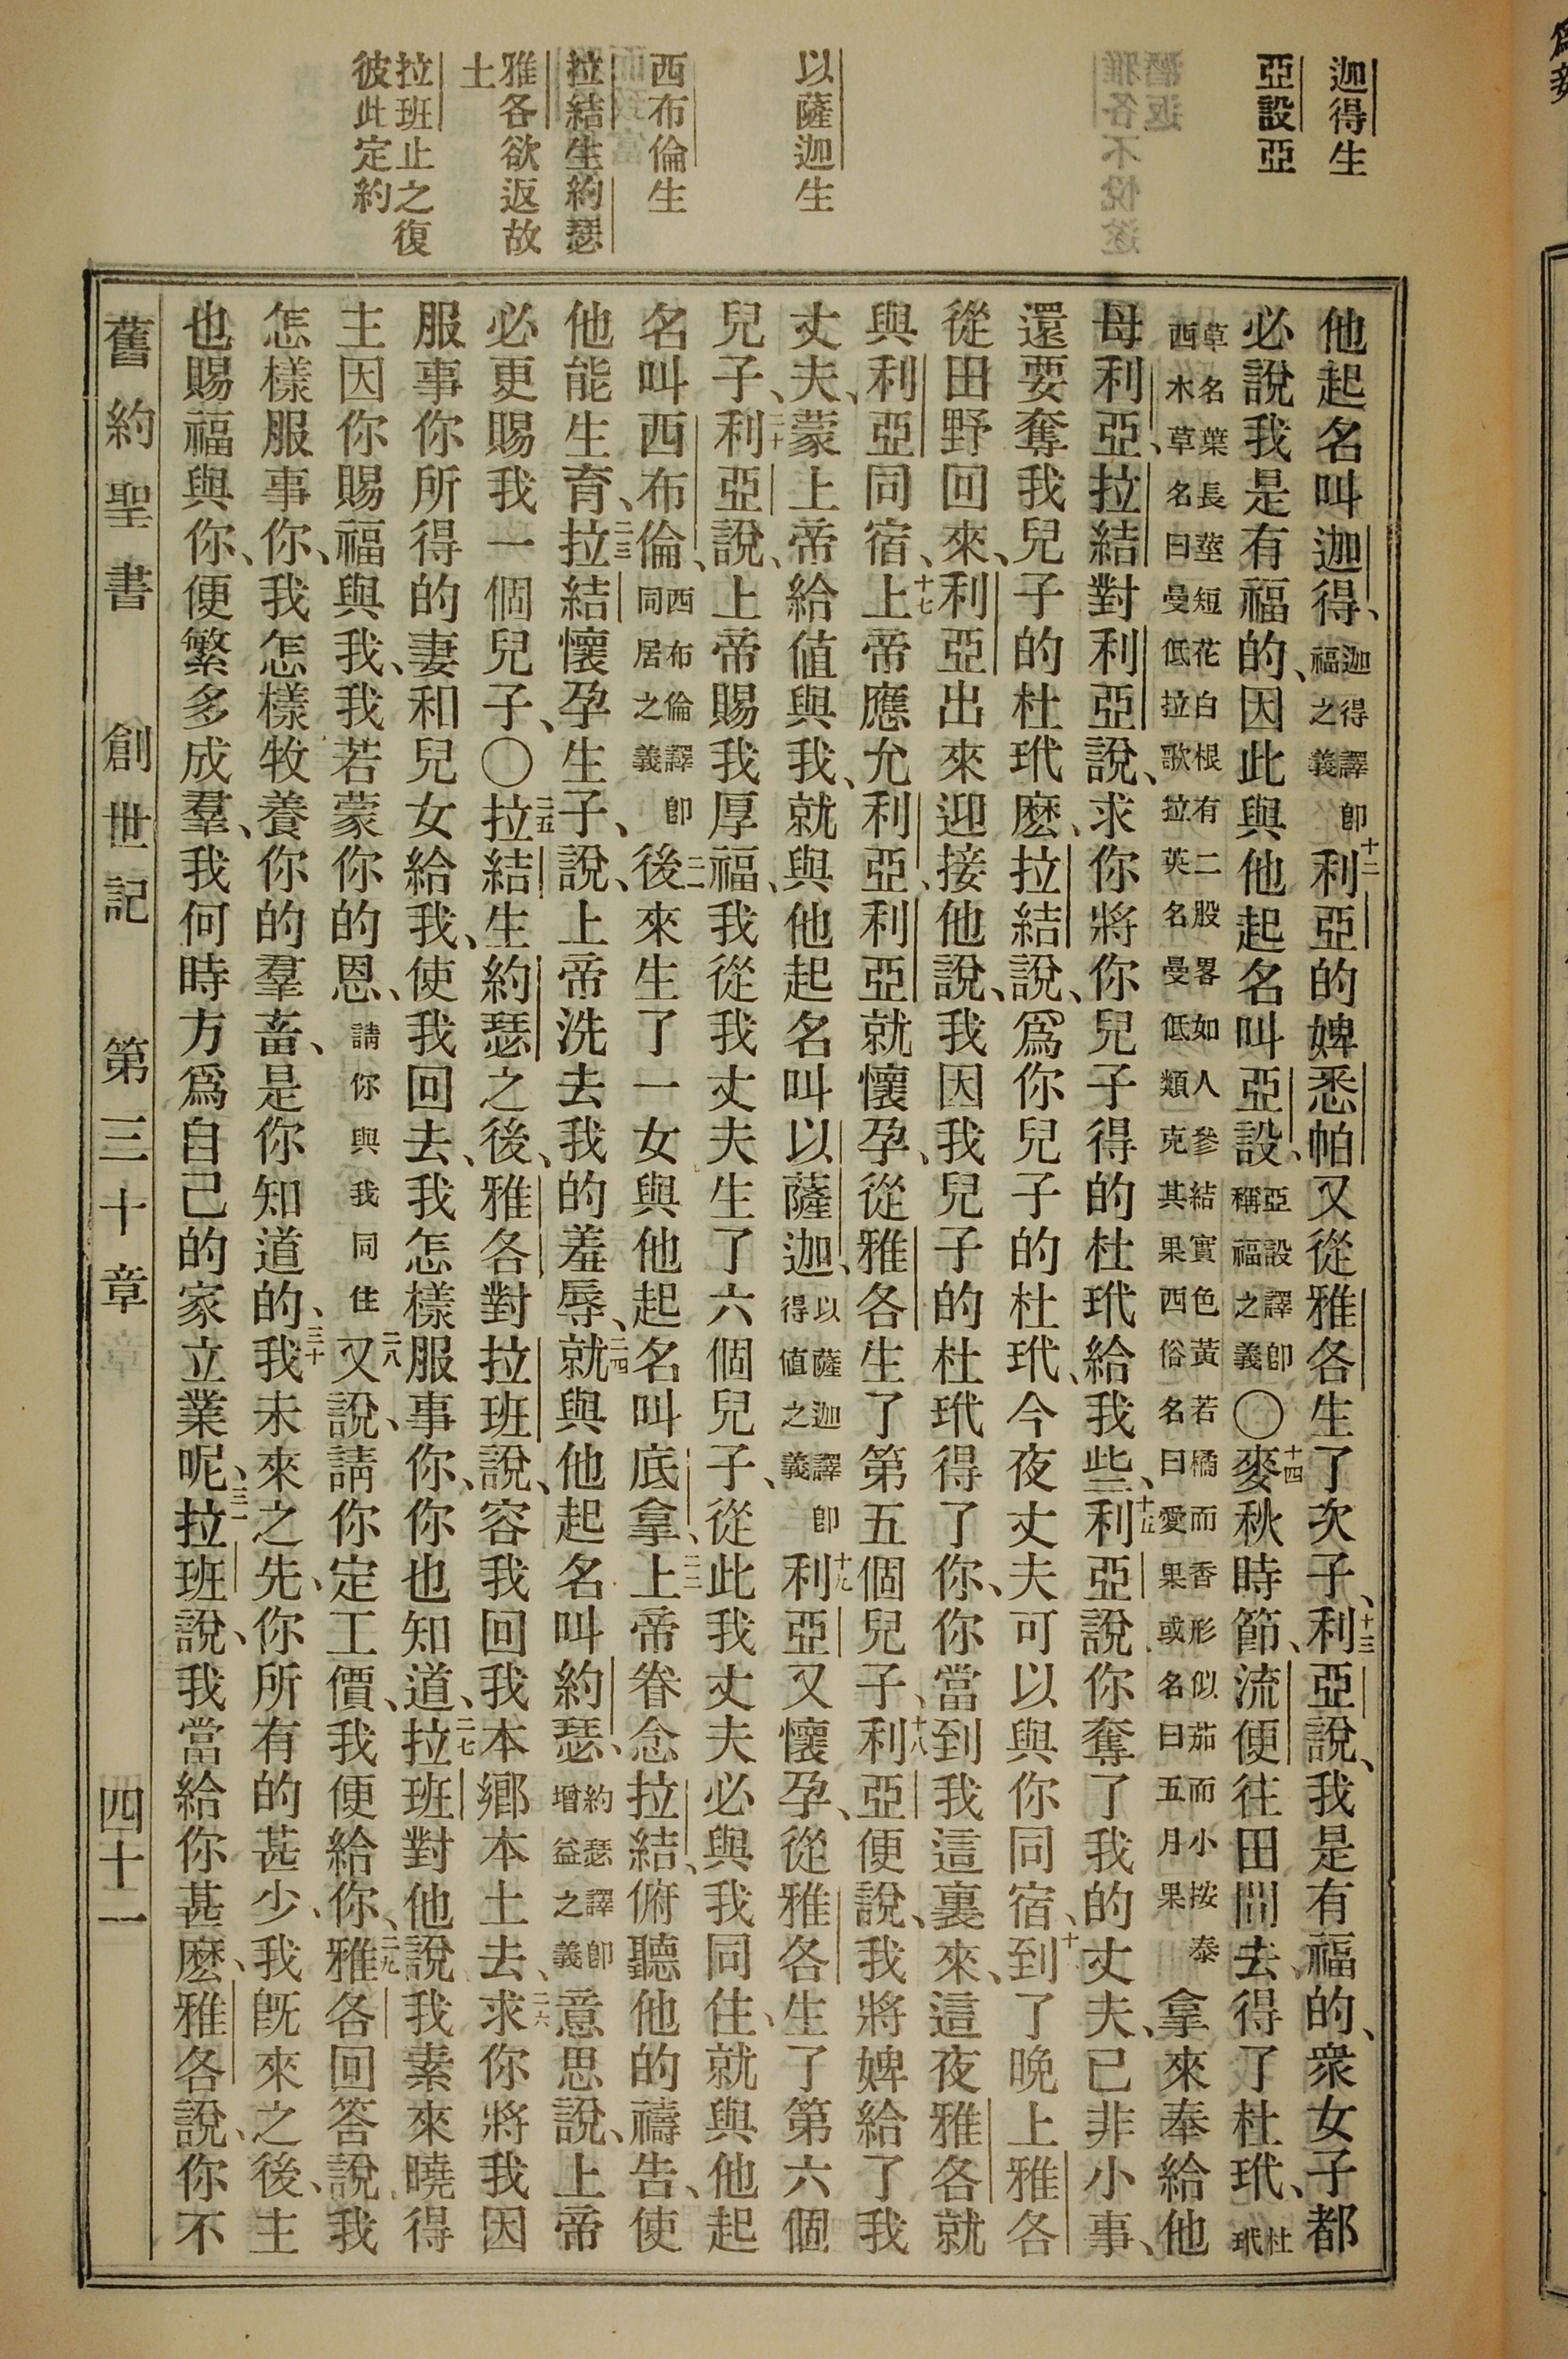 迦得生
亞設亞
以薩迦生
西布倫生
拉結生約瑟
雅各欲返故
土
拉班止之復
彼此定約
他起名叫迦得、迦得譯卽福之義十二利亞的婢悉帕又從雅各生了次子、十三利亞說、我是有福的、衆女子都
必說我是有福的、因此與他起名叫亞設、亞設譯卽稱福之義〇十四麥秋時節、流便往田間去、得了杜玳、杜玳
草名葉長莖短花白根有二股畧如人參結實色黃若橘而香形似茄而小按泰西木草名曰曼低拉歌拉英名曼低類克其果西俗名曰愛果或名曰五月果拿來奉給他
母利亞、拉結對利亞說、求你將你兒子得的杜玳給我些、十五利亞說、你奪了我的丈夫、已非小事、
還要奪我兒子的杜玳麽、拉結說、爲你兒子的杜玳、今夜丈夫可以與你同宿、到了晚上雅各
從田野回來、利亞出來迎接他說、我因我兒子的杜玳得了你、你當到我這裏來、這夜雅各就
與利亞同宿、十七上帝應允利亞、利亞就懷孕、從雅各生了第五個兒子、十八利亞便說、我將婢給了我
丈夫、蒙上帝給値與我、就與他起名叫以薩迦、以薩迦譯卽得値之義十九利亞又懷孕、從雅各生了第六個
兒子、二十利亞說、上帝賜我厚福、我從我丈夫生了六個兒子、從此我丈夫必與我同住、就與他起
名叫西布倫、西布倫譯卽同居之義二一後來生了一女與他起名叫底拿、二二上帝眷念拉結、俯聽他的禱告、使
他能生育、二三拉結懷孕生子、說、上帝洗去我的羞辱、二四就與他起名叫約瑟、約瑟譯卽增益之義意思說、上帝
必更賜我一個兒子、〇二五拉結生約瑟之後、雅各對拉班說、容我回我本鄉本土去、二六求你將我因
服事你所得的妻和兒女給我、使我回去、我怎樣服事你、你也知道、二七拉班對他說我素來曉得
主因你賜福與我、我若蒙你的恩、請你與我同住二八又說、請你定工價、我便給你、二九雅各回答說、我
怎樣服事你、我怎樣牧養你的羣畜、是你知道的、三十我未來之先、你所有的甚少、我旣來之後、主
也賜福與你、便繁多成羣、我何時方爲自己的家立業呢、三一拉班說、我當給你甚麽、雅各說、你不
舊約聖書　創世記　第三十章　四十二